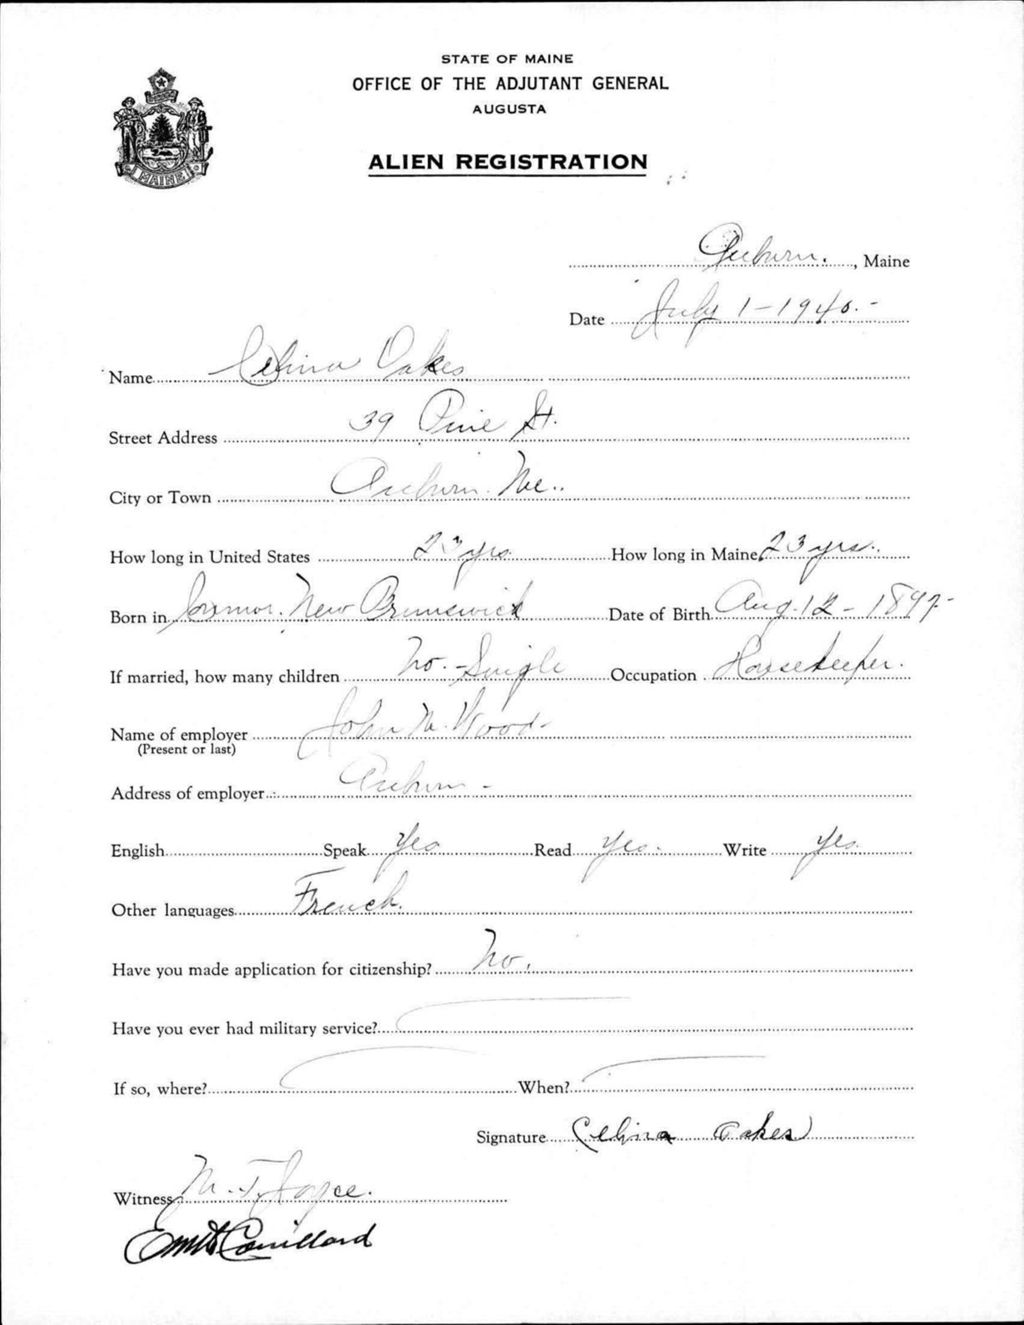 STATE OF MAINE
OFFICE OF THE ADJUTANT GENERAL
AUGUSTA
ALIEN REGISTRATION
MAINE
Auburn, Maine
Date July 1-1940.-
Name Celina Oakes
Street Address 39 Pine St.
City or Town Auburn. Me..
How long in United States 23 yrs How long in Maine 23 yrs.
Born in New Brunswick Date of Birth Aug. 12-1897-
If married, how many children No.-Single Occupation Housekeeper.
Name of employer John M. Wood-
(Present or last)
Address of employer Auburn -
English Speak Yes Read Yes. Write Yes.
Other languages French.
Have you made application for citizenship? No.
Have you ever had military service?
If so, where? When?
Signature Celina Oakes
Witness M. T. Joyce.